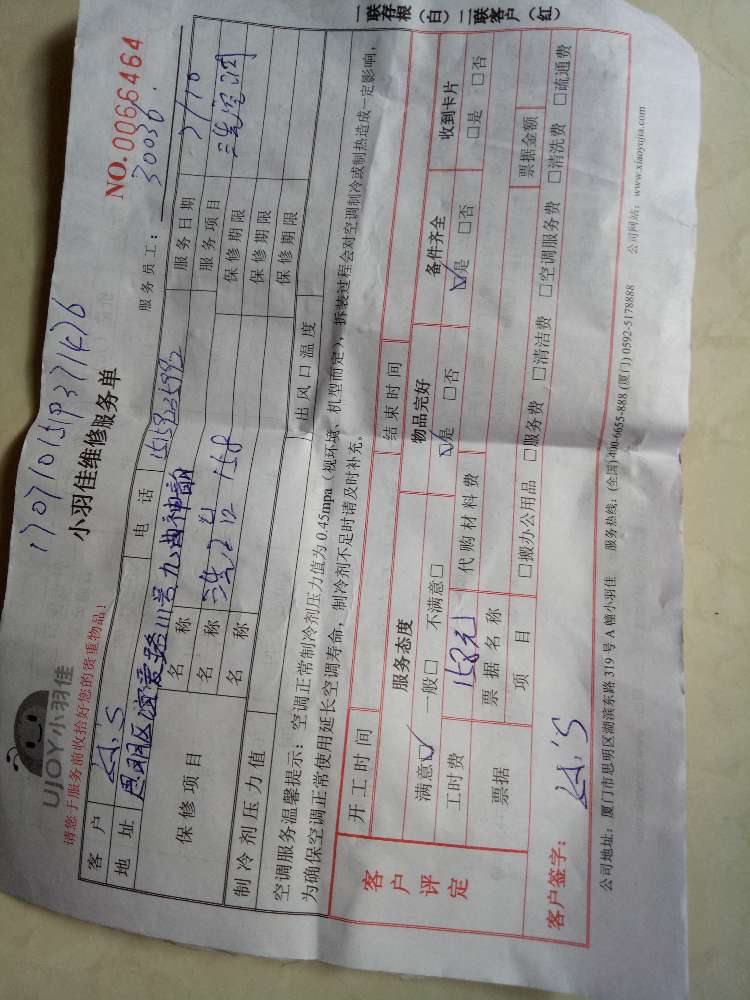 一联存根（白）二联客户（红）
UJOY小羽佳
请您于服务前收拾好您的贵重物品！
小羽佳维修服务单
NO.0066464
服务员工： 30030
客户
电话
服务日期 7/10
地址 思明区
服务项目 洗空调
保修项目
名称
保修期限
名称
保修期限
名称
保修期限
制冷剂压力值
出风口温度
空调服务温馨提示：空调正常制冷剂压力值为0.45mpa（视环境、机型而定），拆装过程会对空调制冷或制热造成一定影响，
为确保空调正常使用延长空调寿命，制冷剂不足时请及时补充。
客户评定
开工时间
结束时间
服务态度
物品完好
备件齐全
收到卡片
满意☑ 一般□ 不满意□
☑是 □否
☑是 □否
□是 □否
工时费 158元
代购材料费
票据
票据名称
票据金额
项目
□搬办公用品 □服务费 □清洁费 □空调服务费 □清洗费 □疏通费
客户签字：
公司地址：厦门市思明区湖滨东路319号A幢小羽佳 服务热线：(全国)400-6655-888 (厦门) 0592-5178888 公司网站：www.xiaoyujia.com